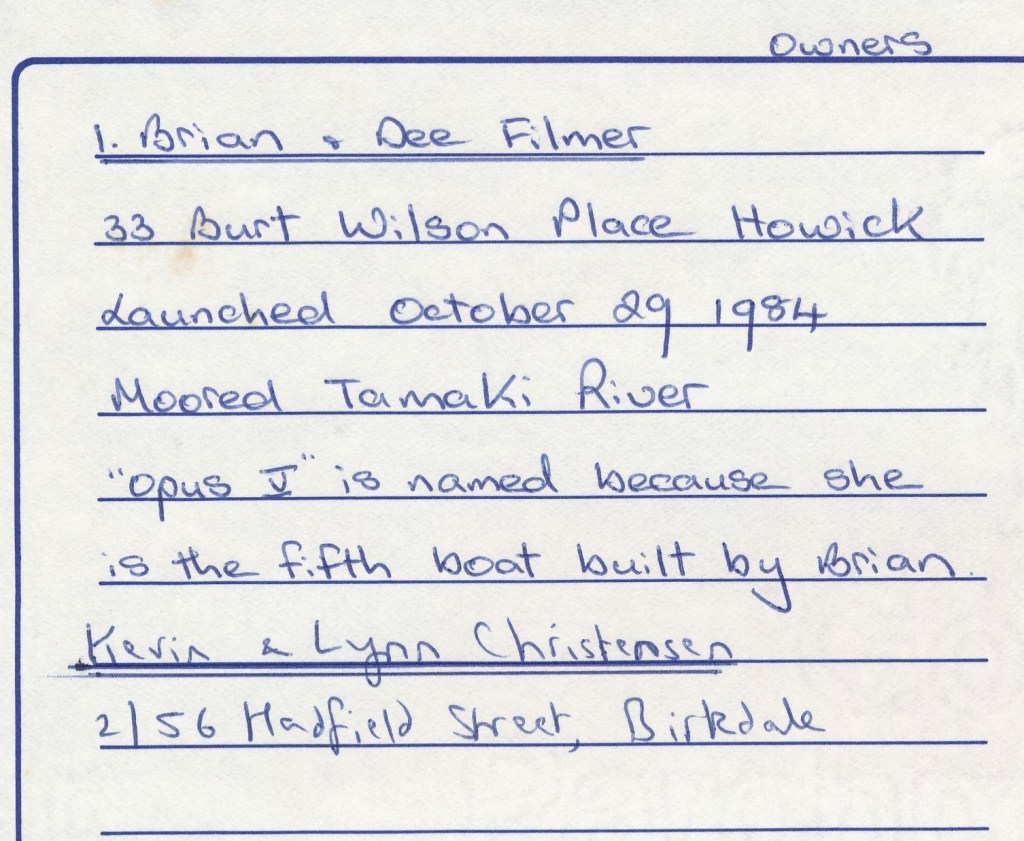 Owners
1. Brian & Dee Filmer
33 Burt Wilson Place Howick
Launched October 29 1984
Moored Tamaki River
"Opus V" is named because she
is the fifth boat built by Brian.
Kevin & Lynn Christensen
2/56 Hadfield Street, Birkdale